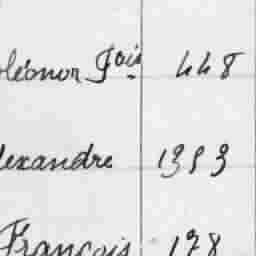 oléonor Jois 448
lexandre 1393
François 178